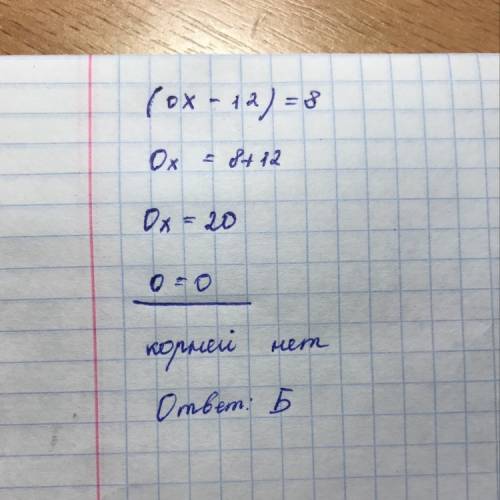 (0x - 12) = 8
0x = 8+12
0x = 20
0 = 0
корней нет
Ответ: Б